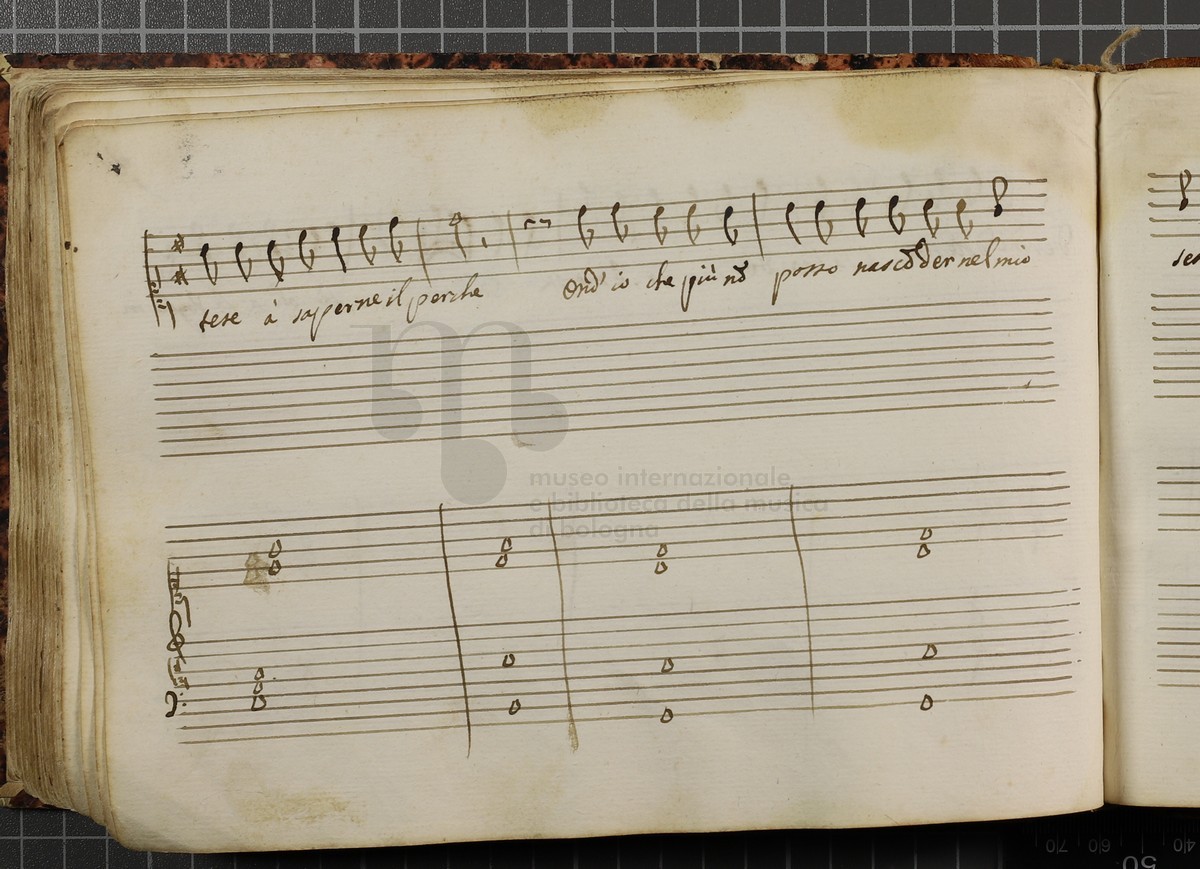 tese à saperne il perche Ond' io che più nõ posso nascõder nel mio
museo internazionale
e biblioteca della musica
di bologna